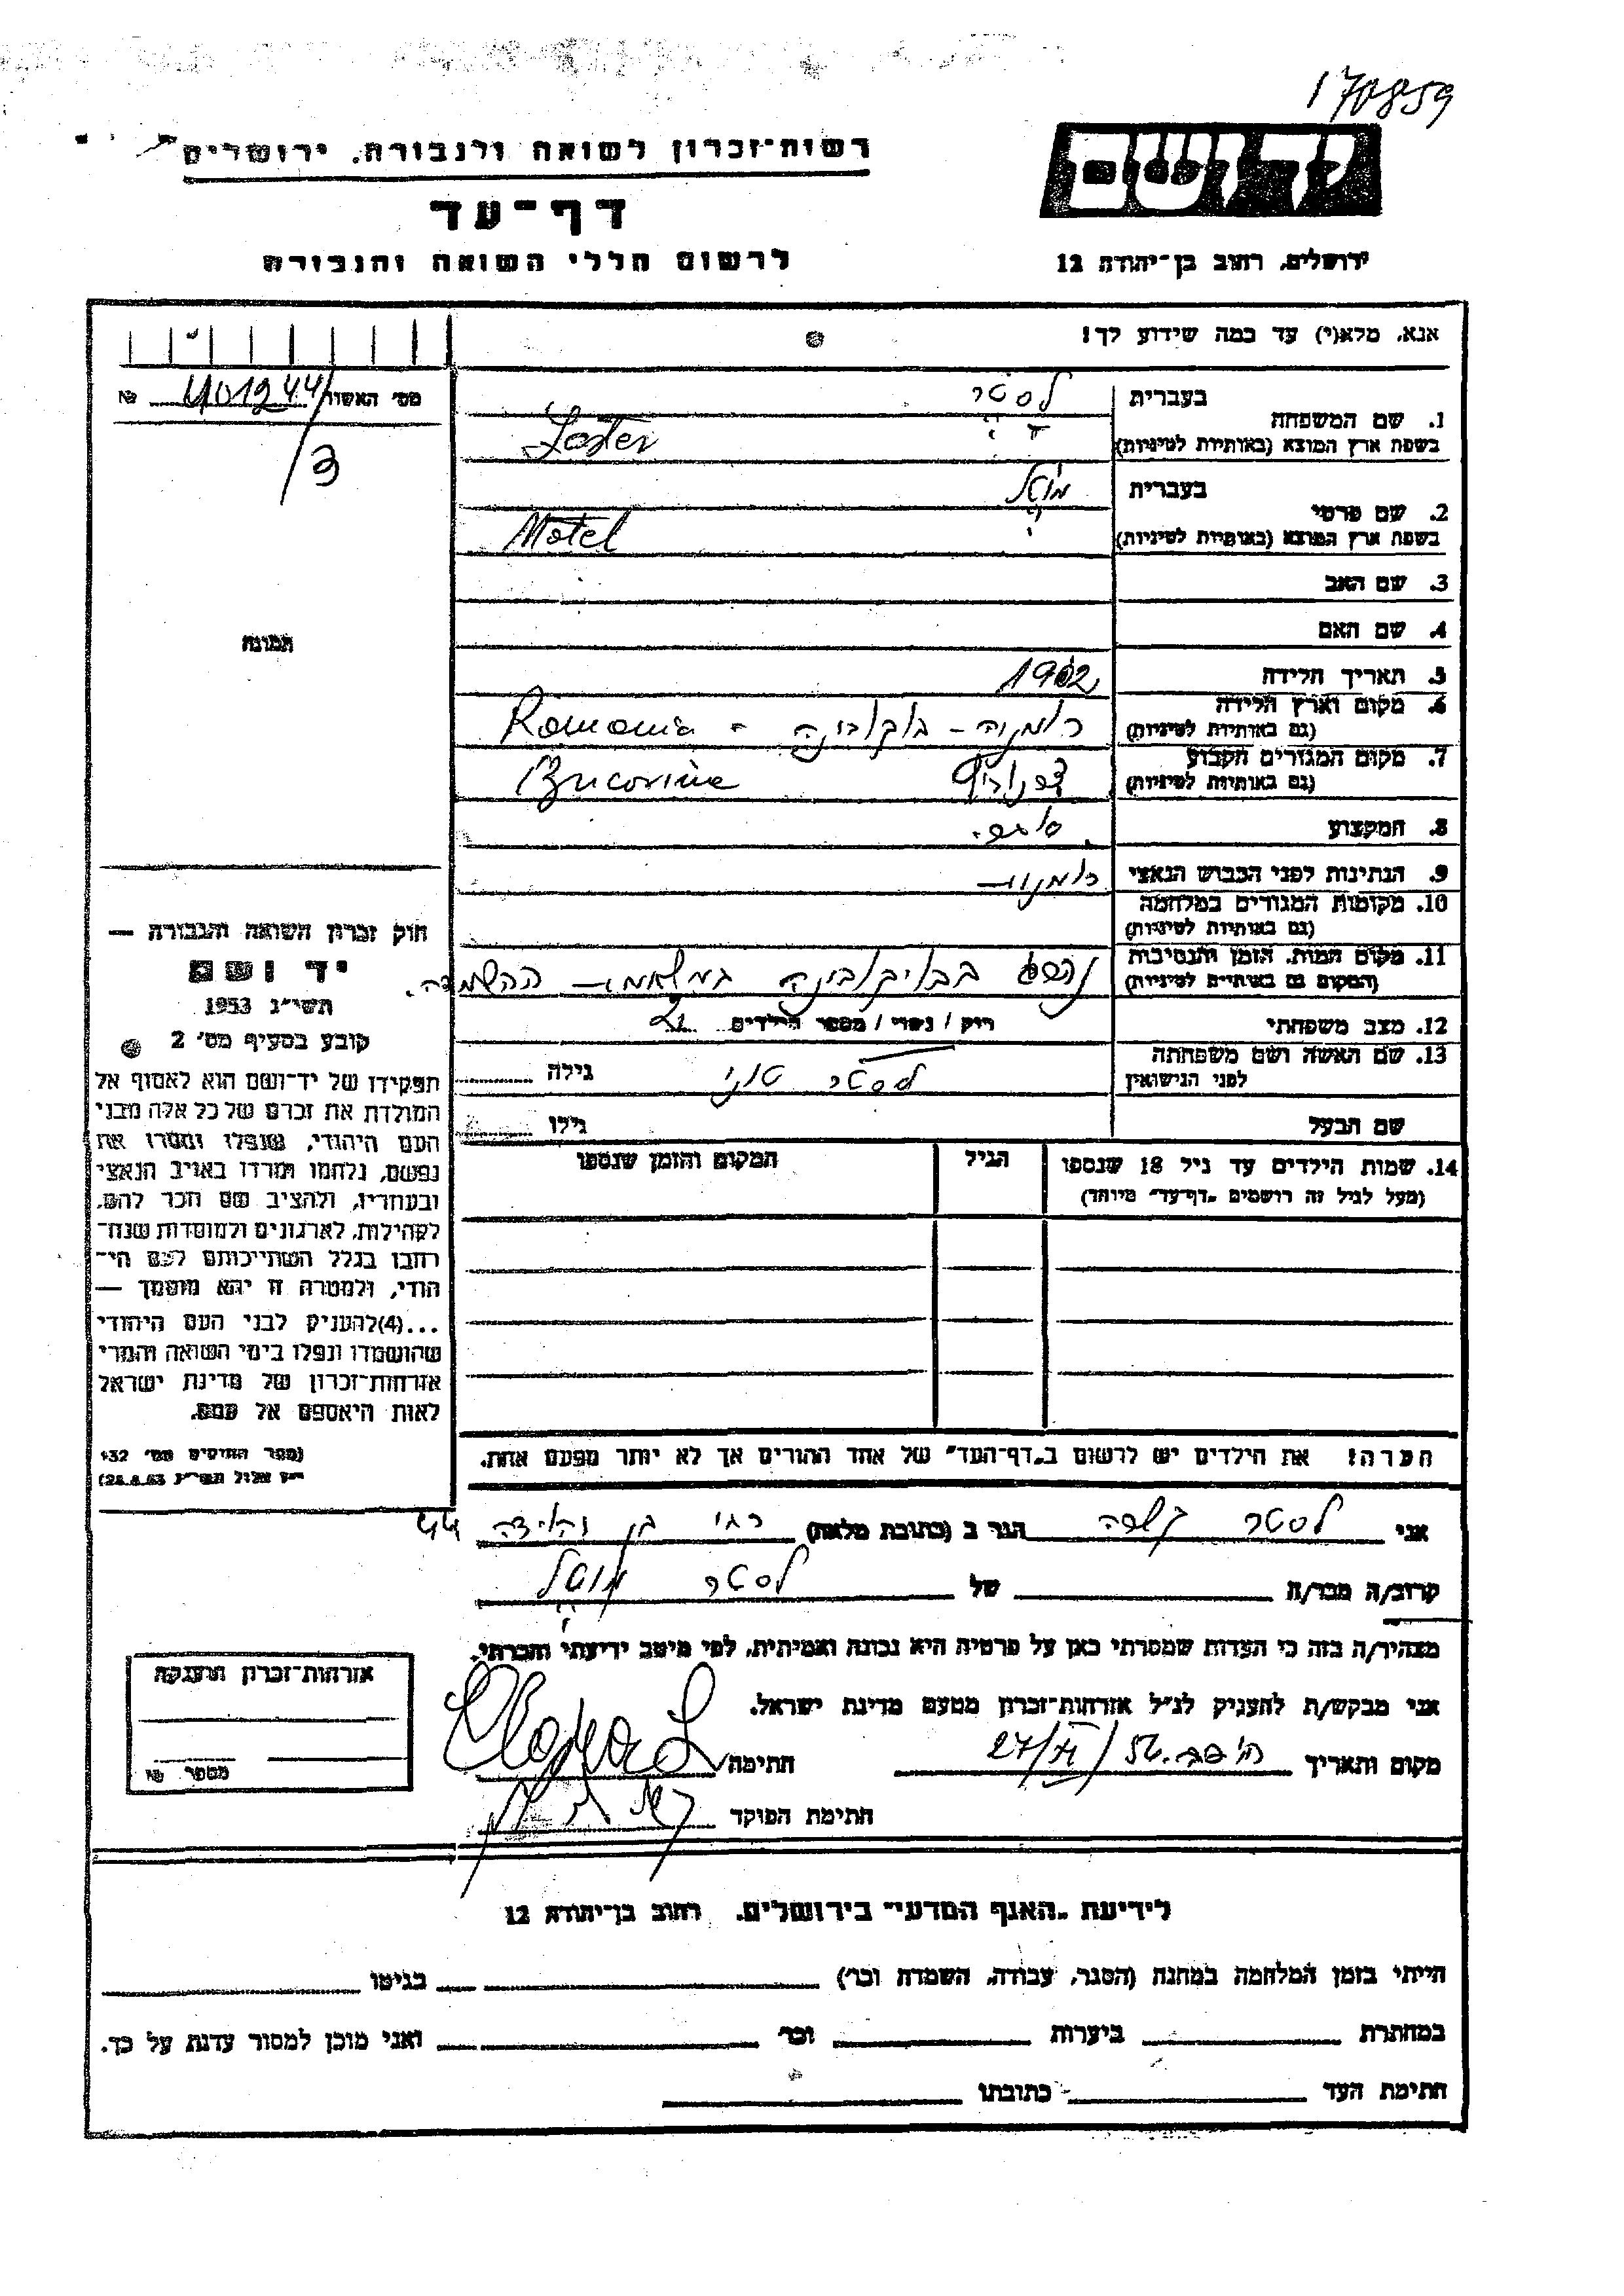 170859
רשות-זכרון לשואה ולגבורה, ירושלים
דף-עד
לרשום חללי השואה והגבורה
יד ושם
ירושלים, רחוב בן-יהודה 12
אנא, מלא(י) עד כמה שידוע לך!
מס' האשור 401244 №
/3
תמונה
1. שם המשפחה בעברית לסטר
בשפת ארץ המוצא (באותיות לטיניות) Laster
2. שם פרטי בעברית מוטל
בשפת ארץ המוצא (באותיות לטיניות) Motel
3. שם האב
4. שם האם
5. תאריך הלידה 1902
6. מקום וארץ הלידה רומניה - בוקובינה - Romania
(גם באותיות לטיניות)
7. מקום המגורים הקבוע Bucovina
(גם באותיות לטיניות)
8. המקצוע
9. הנתינות לפני הכבוש הנאצי רומנית
10. מקומות המגורים במלחמה
(גם באותיות לטיניות)
11. מקום המות, הזמן והנסיבות נהרג בבוקובינה ההשמדה.
(המקום גם באותיות לטיניות)
12. מצב משפחתי רוק / נשוי / מספר הילדים 2
13. שם האשה ושם משפחתה לסטר טוני גילה
לפני הנישואין
שם הבעל גילו
14. שמות הילדים עד גיל 18 שנספו הגיל המקום והזמן שנספו
(מעל לגיל זה רושמים "דף-עד" מיוחד)
הערה! את הילדים יש לרשום ב"דף-העד" של אחד ההורים אך לא יותר מפעם אחת.
חוק זכרון השואה והגבורה —
יד ושם
תשי"ג 1953
קובע בסעיף מס' 2
תפקידו של יד-ושם הוא לאסוף אל
המולדת את זכרם של כל אלה מבני
העם היהודי, שנפלו ומסרו את
נפשם, נלחמו ומרדו באויב הנאצי
ובעוזריו, ולהציב שם וזכר להם,
לקהילות, לארגונים ולמוסדות שנח-
רחבו בגלל השתייכותם לעם הי-
הודי, ולמטרה זו יהא מוסמך —
...(4)להעניק לבני העם היהודי
שהושמדו ונפלו בימי השואה והמרי
אזרחות-זכרון של מדינת ישראל
לאות היאספם אל עמם.
(ספר החוקים מס' 132
י"ז אלול תשי"ג 28.8.53)
אני לסטר הגר ב (כתובת מלאה) 44
קרוב/ה מכר/ה של לסטר מוטל
מצהיר/ה בזה כי העדות שמסרתי כאן על פרטיה היא נכונה ואמיתית, לפי מיטב ידיעתי והכרתי.
אני מבקש/ת להעניק לנ"ל אזרחות-זכרון מטעם מדינת ישראל.
מקום ותאריך 27/VI/56 חתימה
חתימת הפוקד
אזרחות-זכרון הוענקה
מספר №
לידיעת "האגף המדעי" בירושלים, רחוב בן-יהודה 12
הייתי בזמן המלחמה במחנה (הסגר, עבודה, השמדה וכר') בגיטו
במחתרת ביערות וכר' ואני מוכן למסור עדות על כך.
חתימת העד כתובתו